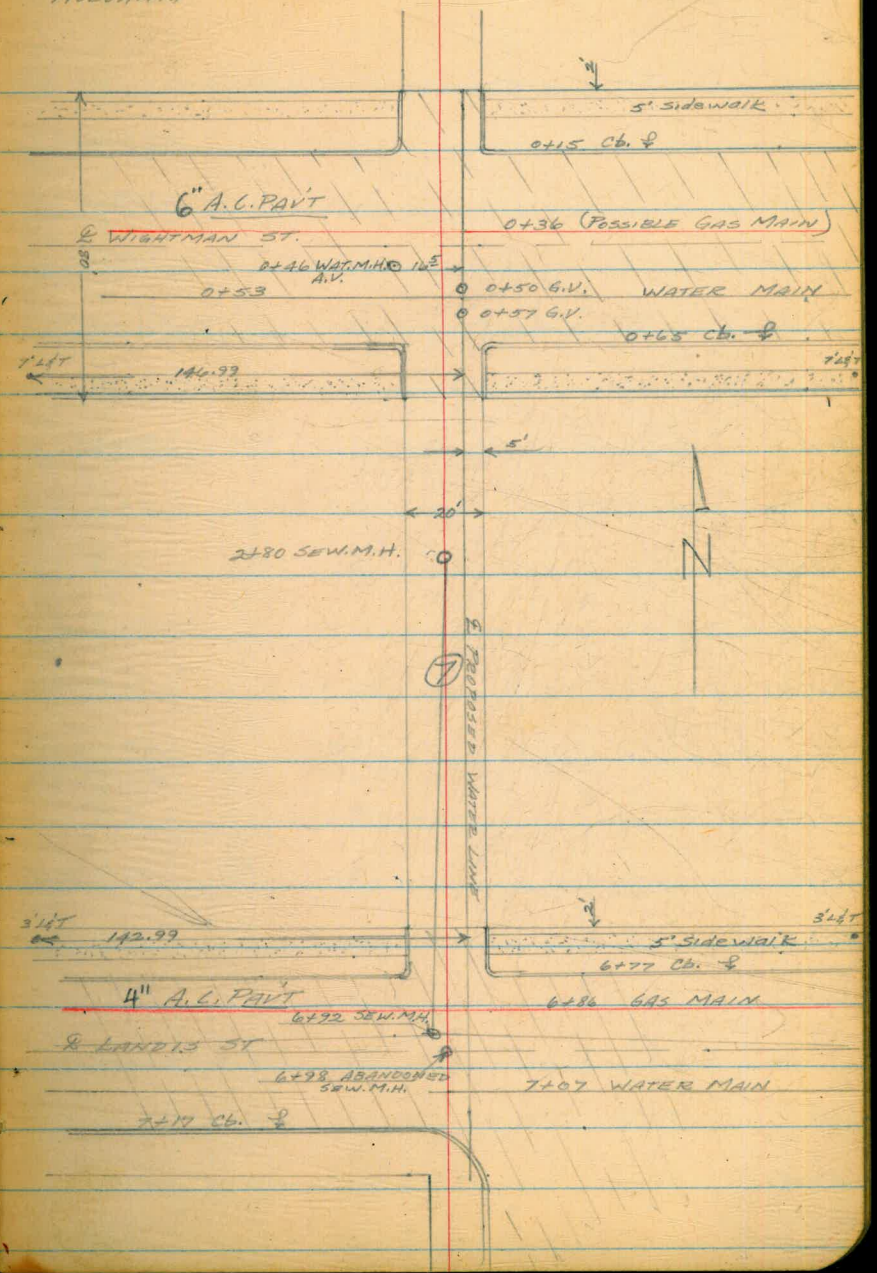 2'
5' Sidewalk
0+15 Cb. ℄
6" A.C. PAV'T
0+36 (POSSIBLE GAS MAIN)
℄ WIGHTMAN ST.
80
0+46 WAT. M.H. 16⁵
A.V.
0+53
0+50 G.V. WATER MAIN
0+57 G.V.
0+65 Cb. ℄
7' L&T
146.99
7' L&T
5'
20'
2+80 SEW. M.H.
N
7
℄ PROPOSED WATER LINE
2'
3' L&T
142.99
3' L&T
5' Sidewalk
6+77 Cb. ℄
4" A.C. PAV'T
6+86 GAS MAIN
6+92 SEW. M.H.
℄ LANDIS ST
6+98 ABANDONED
SEW. M.H.
7+07 WATER MAIN
7+17 Cb. ℄